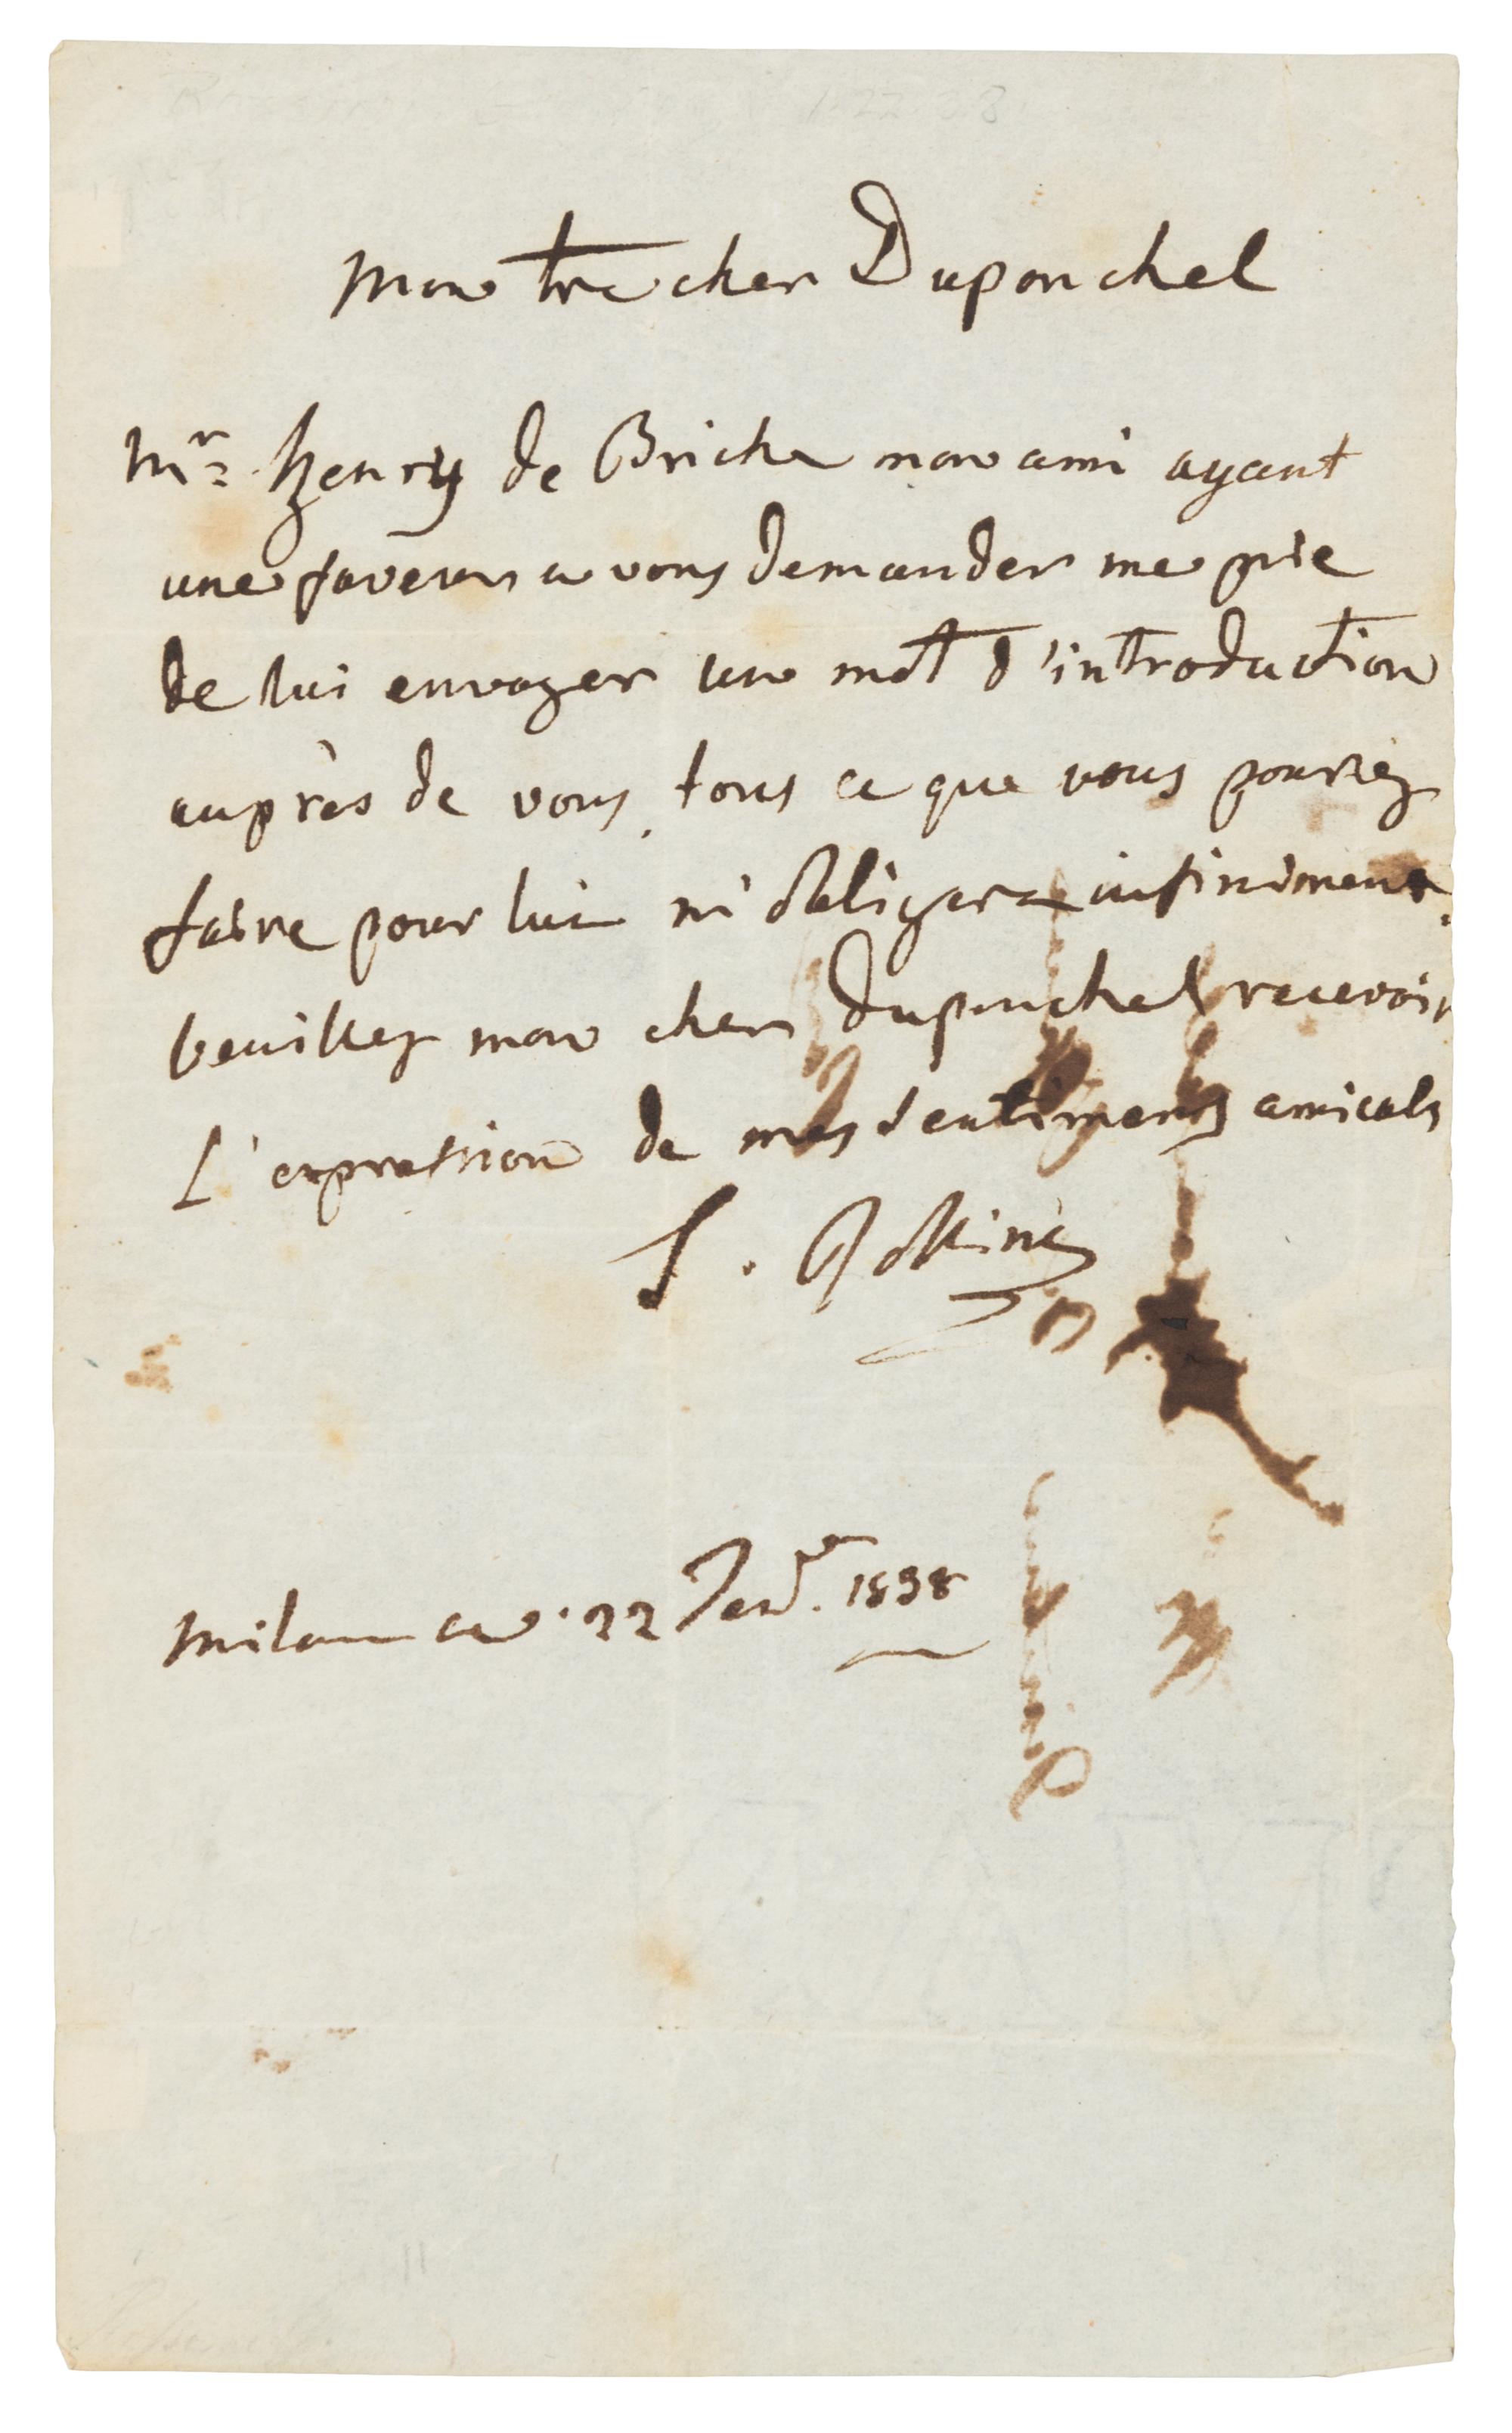 1-22-38
Mon tre cher Duponchel
Mr. henry de Briche mon ami ayant
une faveur a vous demander me prie
de lui envoyer un mot d'introduction
auprès de vous, tous ce que vous pouriez
faire pour lui m'obligera infiniment.
Veuillez mon cher duponchel recevoir
L'expression de mes sentiments amicals
Milan ce 22 Janr. 1838